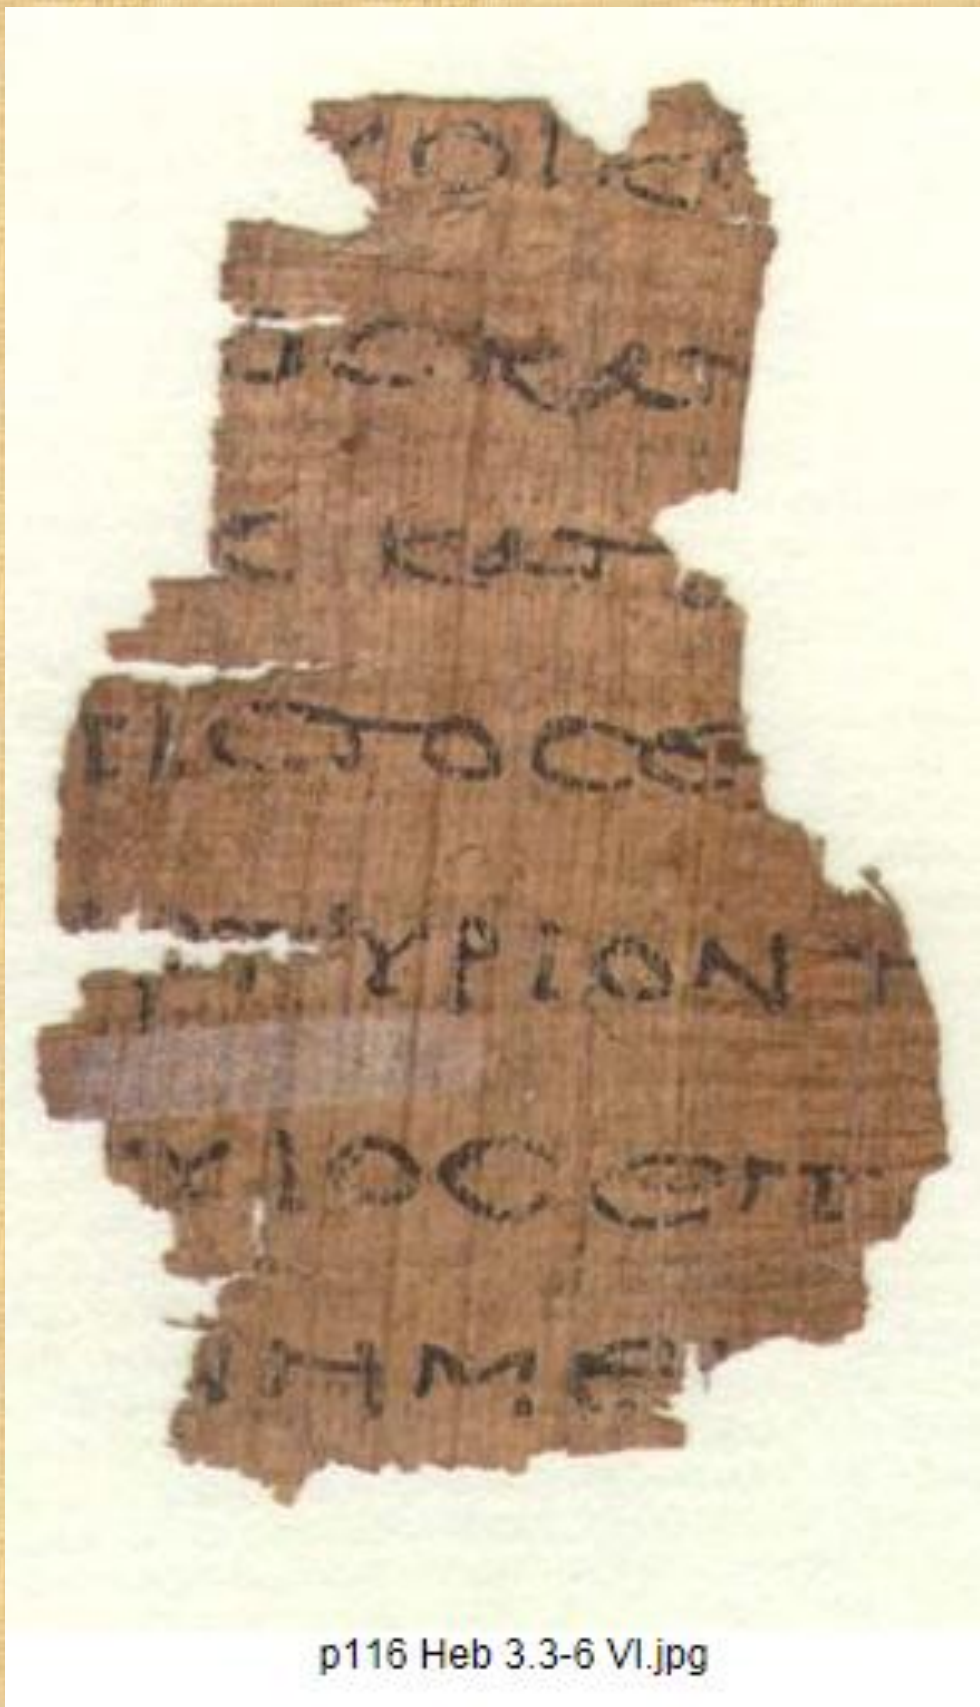 ΟΙ
ΟϹΚΑΤ
Ε ΚΑΤΑ
ΠΙϹΤΟϹΕ
ΥΡΙΟΝ Τ
ΥΙΟϹ ΕΠΙ
ΗΜΕ
p116 Heb 3.3-6 VI.jpg